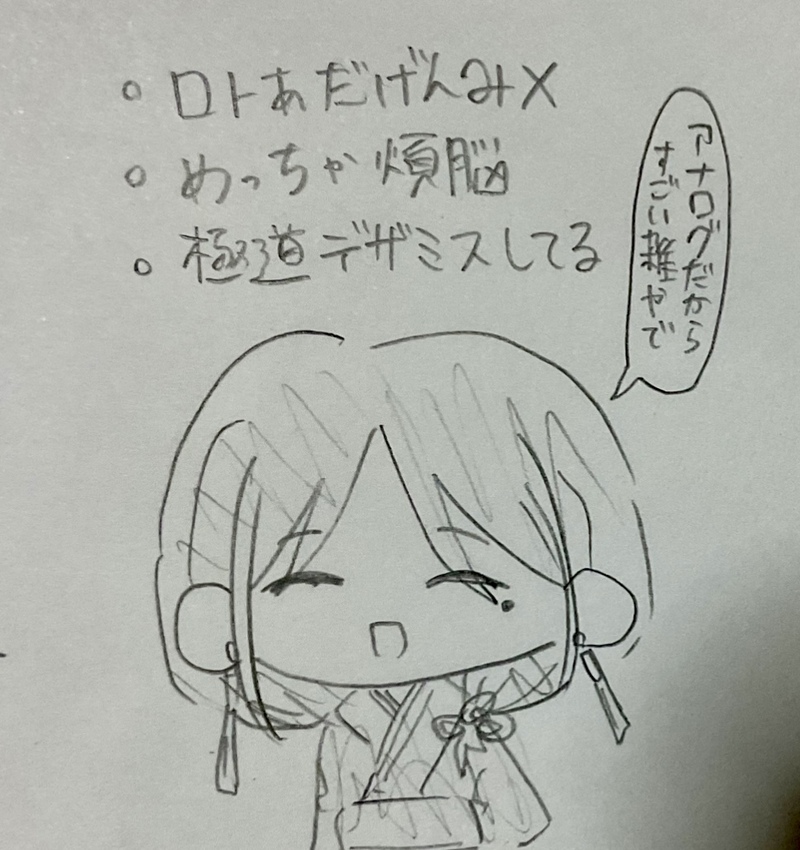 。ロトあだげんみ×
。めっちゃ煩脳
。極道デザミスしてる
アナログだから
すごい雑やで